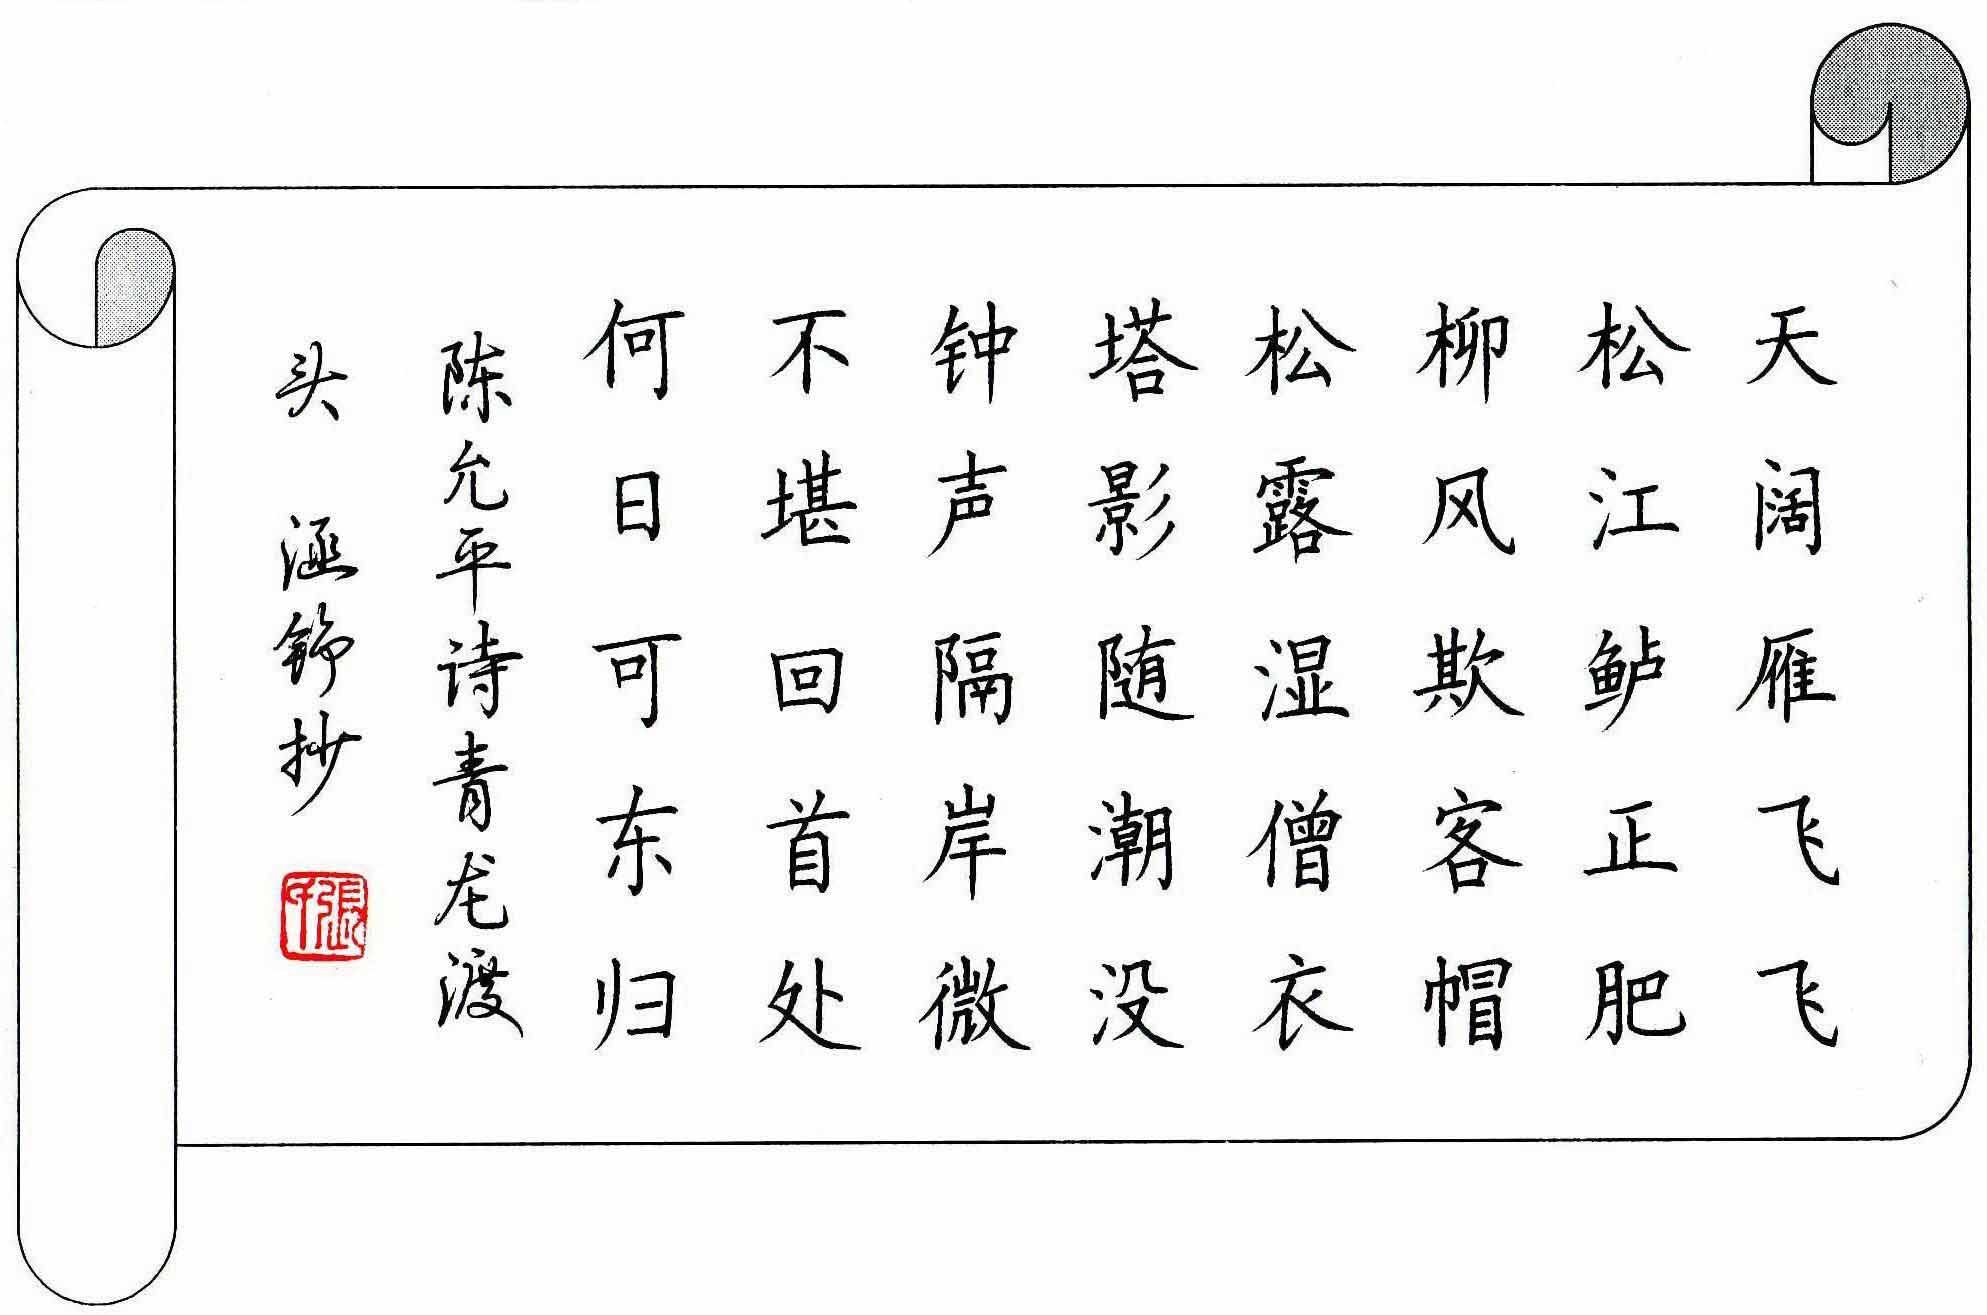 天阔雁飞飞
松江鲈正肥
柳风欺客帽
松露湿僧衣
塔影随潮没
钟声隔岸微
不堪回首处
何日可东归
陈允平诗青龙渡
头 涵錚抄